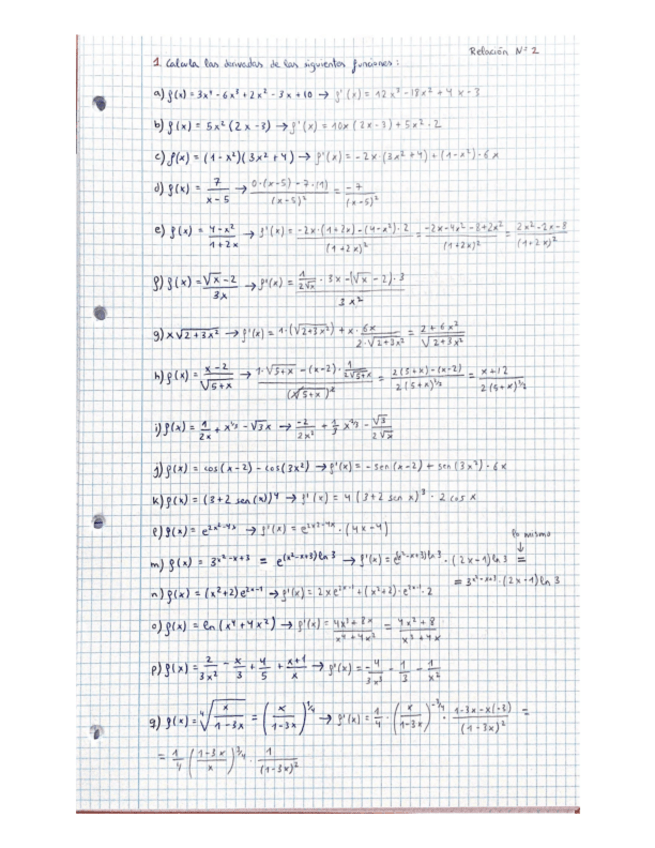 Relación Nº 2
1. Calcula las derivadas de las siguientes funciones:
a) f(x) = 3x⁴ - 6x³ + 2x² - 3x + 10 → f'(x) = 12x³ - 18x² + 4x - 3
b) f(x) = 5x² (2x - 3) → f'(x) = 10x (2x - 3) + 5x² · 2
c) f(x) = (1 - x²)(3x² + 4) → f'(x) = -2x · (3x² + 4) + (1 - x²) · 6x
d) f(x) = 7/(x - 5) → (0·(x-5) - 7·(1))/(x-5)² = -7/(x-5)²
e) f(x) = (4-x²)/(1+2x) → f'(x) = (-2x·(1+2x) - (4-x²)·2)/(1+2x)² = (-2x-4x²-8+2x²)/(1+2x)² = (2x²-2x-8)/(1+2x)²
f) f(x) = (√x - 2)/3x → f'(x) = (1/(2√x) · 3x - (√x - 2) · 3)/3x²
g) x√(2+3x²) → f'(x) = 1·(√(2+3x²)) + x · 6x/(2·√(2+3x²)) = (2+6x²)/√(2+3x²)
h) f(x) = (x-2)/√(5+x) → (1·√(5+x) - (x-2)·1/(2√(5+x)))/(√(5+x))² = (2(5+x)-(x-2))/(2(5+x)^3/2) = (x+12)/(2(5+x)^3/2)
i) f(x) = 1/2x + x^1/3 - √3x → -2/2x² + 1/3 x^2/3 - √3/(2√x)
j) f(x) = cos(x-2) - cos(3x²) → f'(x) = -sen(x-2) + sen(3x²) · 6x
k) f(x) = (3+2 sen(x))⁴ → f'(x) = 4(3+2 sen x)³ · 2 cos x
l) f(x) = e^(2x²-4x) → f'(x) = e^(2x²-4x) · (4x-4)
lo mismo
↓
m) f(x) = 3^(x²-x+3) = e^((x²-x+3)ln 3) → f'(x) = e^((x²-x+3)ln 3) · (2x-1)ln 3 =
= 3^(x²-x+3) · (2x-1) ln 3
n) f(x) = (x²+2)e^(2x-1) → f'(x) = 2xe^(2x-1) + (x²+2)·e^(2x-1) · 2
o) f(x) = ln(x⁴+4x²) → f'(x) = (4x³+8x)/(x⁴+4x²) = (4x²+8)/(x³+4x)
p) f(x) = 2/3x² - x/3 + 4/5 + (x+1)/x → f'(x) = -4/3x³ - 1/3 - 1/x²
q) f(x) = ⁴√(x/(1-3x)) = (x/(1-3x))^1/4 → f'(x) = 1/4 · (x/(1-3x))^-3/4 · (1-3x-x(-3))/(1-3x)² =
= 1/4 ((1-3x)/x)^3/4 · 1/(1-3x)²